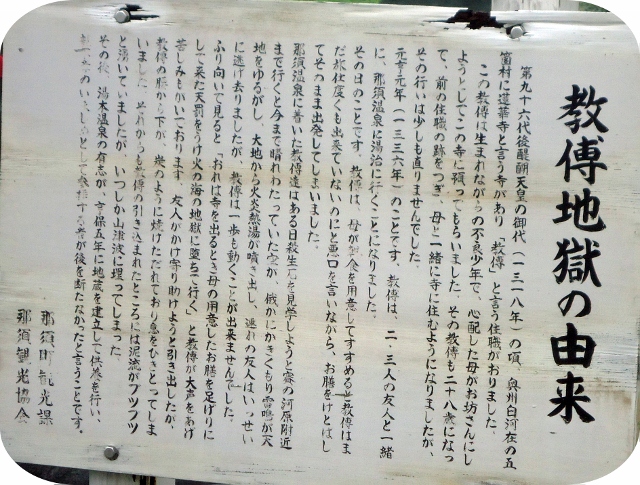 教傅地獄の由来
第九十六代後醍醐天皇の御代(一三一八年)の頃、奥州白河在の五
箇村に蓮華寺と言う寺があり「教傅」と言う住職がおりました。
この教傅は生まれながらの不良少年で、心配した母がお坊さんにし
ようとしてこの寺に預ってもらいました。その教傅も二十八歳になっ
て、前の住職の跡をつぎ、母と一緒に寺に住むようになりましたが、
その行いは少しも直りませんでした。
元亨元年(一三三六年)のことです。教傅は、二・三人の友人と一緒
に、那須温泉に湯治に行くことになりました。
その日のことです。教傅は、母が朝食を用意してすすめると教傅はま
だ旅仕度も出来ていないのにと悪口を言いながら、お膳をけとばし
てそのまま出発してしまいました。
那須温泉に着いた教傅達はある日殺生石を見学しようと賽の河原附近
まで行くと今まで晴れわたっていた空が、俄かにかきくもり雷鳴が天
地をゆるがし、大地から火炎熱湯が噴き出し、連れの友人はいっせい
に逃げ去りましたが、教傅は一歩も動くことが出来ませんでした。
ふり向いて見ると「おれは寺を出るとき母の用意したお膳を足げりに
して来た天罰をうけ火の海の地獄に墜ちて行く」と教傅が大声をあげ
苦しみもがいております。友人がかけ寄り助けようと引き出したが、
教傅の腰から下が、炭のように焼けただれており息をひきとってしま
いました。それからも教傅の引き込まれたところには泥流がブツブツ
と湧いていましたが いつしか山津波に埋ってしまった。
その後、湯本温泉の有志が、享保五年に地蔵を建立して供養を行い、
のいましめとして参拝する者が後を断たなかったと言うことです。
那須町観光課
那須観光協会